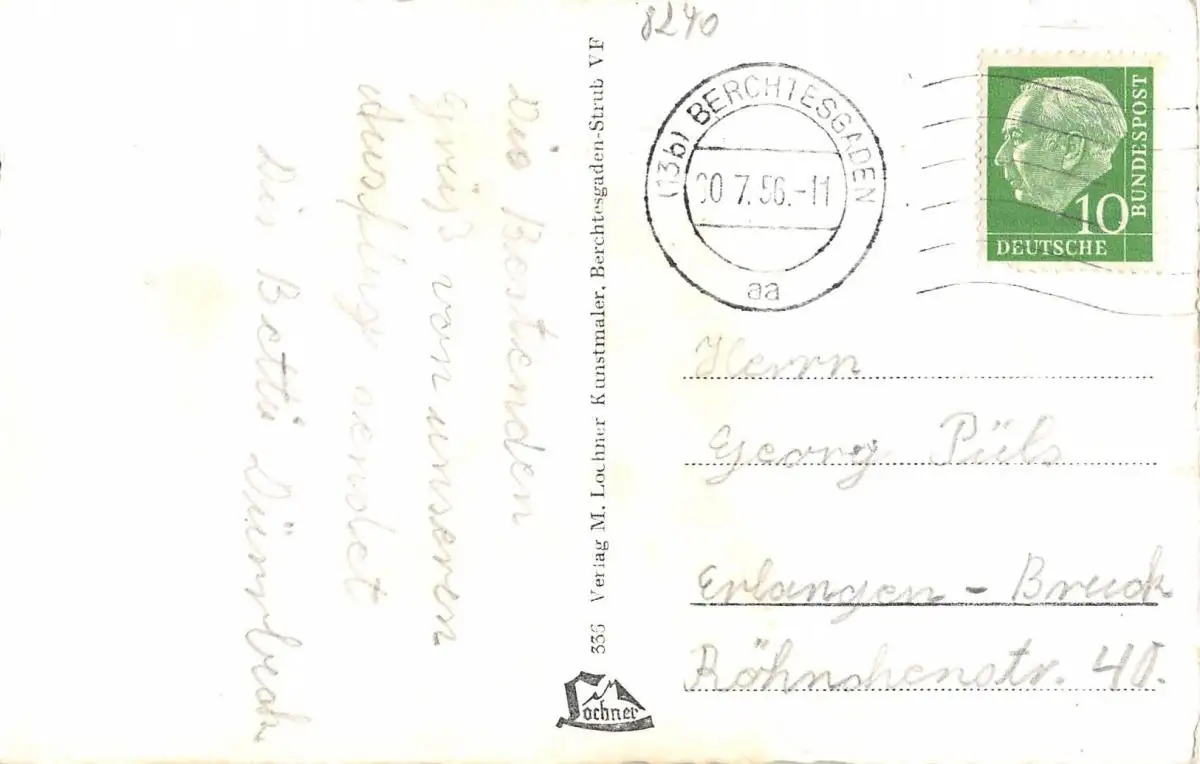 8240
(13b) BERCHTESGADEN
30.7.56.-11
aa
10
DEUTSCHE
BUNDESPOST
Die Besten
Grüß von unseren
Ausflug sendet
Dir Betti
336 Verlag M. Lochner Kunstmaler, Berchtesgaden-Strub VF
Lochner
Herrn
Georg Püls
Erlangen - Bruck
Röhnchenstr. 40.